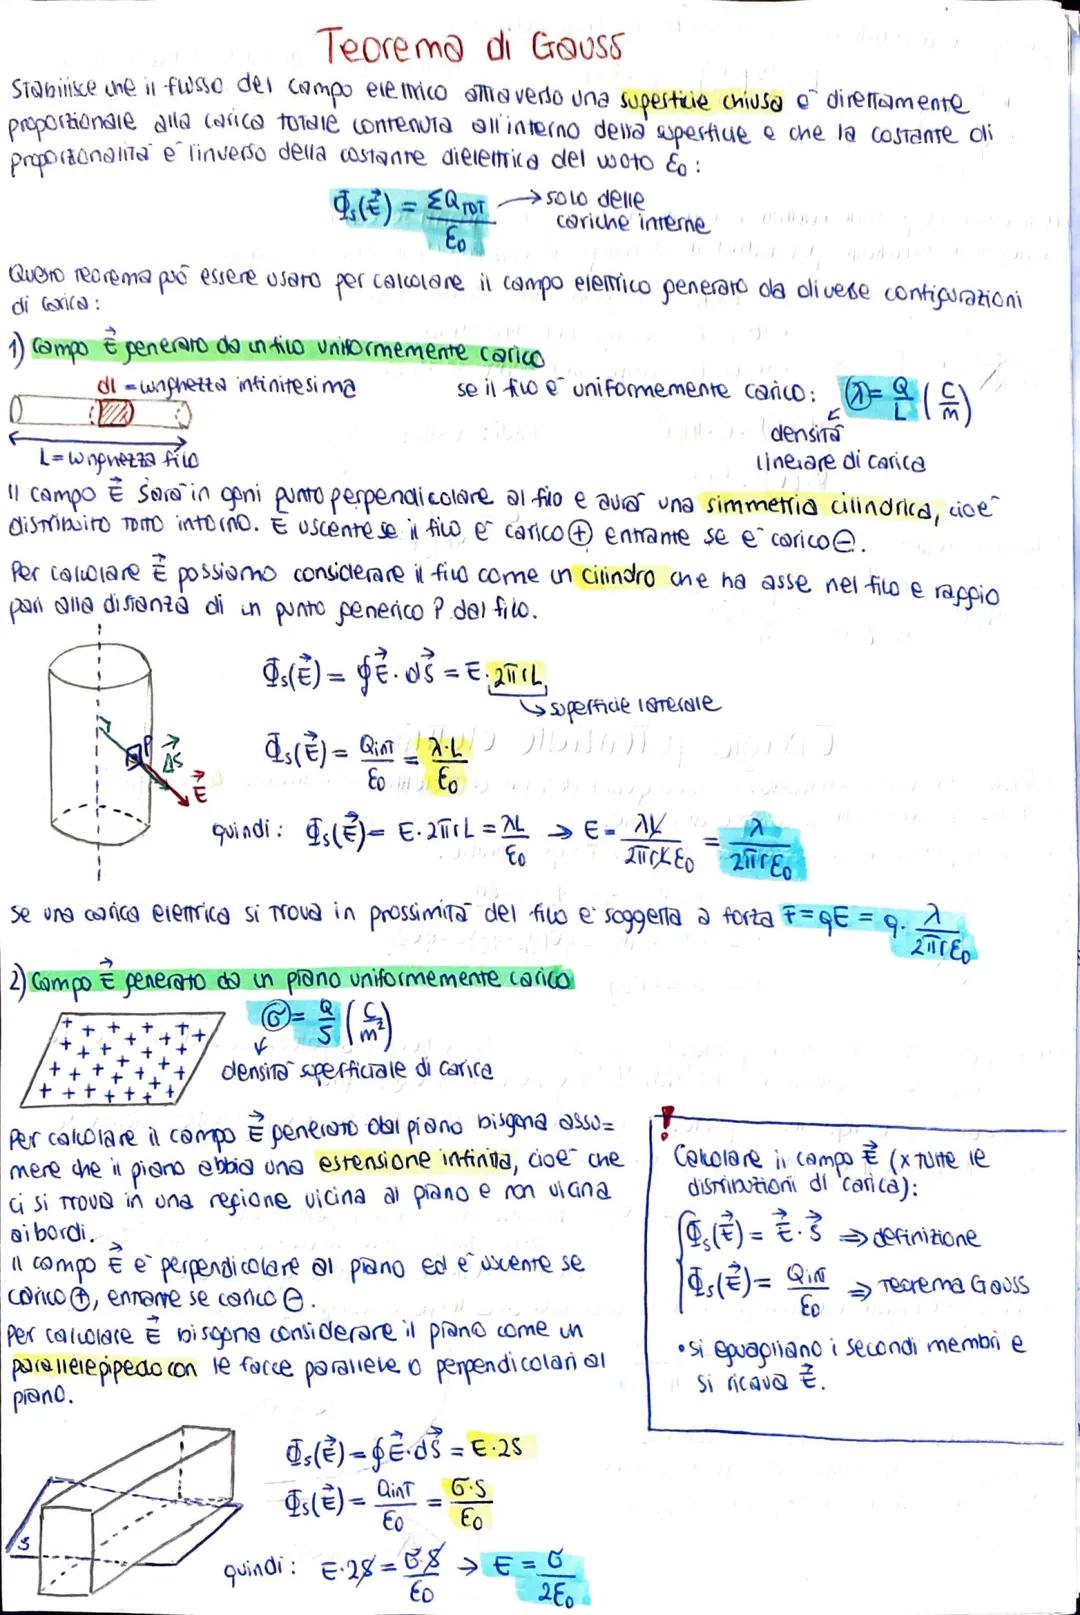 Teorema di Gauss
Stabilisce che il flusso del campo elettrico attraverso una superficie chiusa è direttamente
proporzionale alla carica totale contenuta all'interno della superficie e che la costante di
proporzionalità è l'inverso della costante dielettrica del vuoto ε₀:
Φs(E⃗) = ΣQTOT / ε₀ → solo delle
cariche interne
Questo teorema può essere usato per calcolare il campo elettrico generato da diverse configurazioni
di carica:
1) Campo E⃗ generato da un filo uniformemente carico
dl = lunghezza infinitesima
se il filo è uniformemente carico: λ = Q/L (C/m)
densità
lineare di carica
L = lunghezza filo
Il campo E⃗ sarà in ogni punto perpendicolare al filo e avrà una simmetria cilindrica, cioè
distribuito tutto intorno. È uscente se il filo è carico ⊕ entrante se è carico ⊖.
Per calcolare E⃗ possiamo considerare il filo come un cilindro che ha asse nel filo e raggio
pari alla distanza di un punto generico P dal filo.
Φs(E⃗) = ∮E⃗·dS⃗ = E·2πrL
superficie laterale
P
ΔS⃗
E⃗
Φs(E⃗) = Qint/ε₀ = λ·L/ε₀
quindi: Φs(E⃗) = E·2πrL = λL/ε₀ → E = λL/2πrLε₀ = λ/2πrε₀
Se una carica elettrica si trova in prossimità del filo è soggetta a forza F = qE = q·λ/2πrε₀
2) Campo E⃗ generato da un piano uniformemente carico
σ = Q/S (C/m²)
densità superficiale di carica
Per calcolare il campo E⃗ generato dal piano bisogna assu=
mere che il piano abbia una estensione infinita, cioè che
ci si trova in una regione vicina al piano e non vicina
ai bordi.
Il campo E⃗ è perpendicolare al piano ed è uscente se
carico ⊕, entrante se carico ⊖.
Per calcolare E⃗ bisogna considerare il piano come un
parallelepipedo con le facce parallele o perpendicolari al
piano.
!
Calcolare il campo E⃗ (x tutte le
distribuzioni di carica):
Φs(E⃗) = E⃗·S⃗ ⇒ definizione
Φs(E⃗) = Qint/ε₀ ⇒ Teorema Gauss
• si eguagliano i secondi membri e
si ricava E⃗.
S
Φs(E⃗) = ∮E⃗·dS⃗ = E·2S
Φs(E⃗) = Qint/ε₀ = σ·S/ε₀
quindi: E·2S = σ·S/ε₀ → E = σ/2ε₀